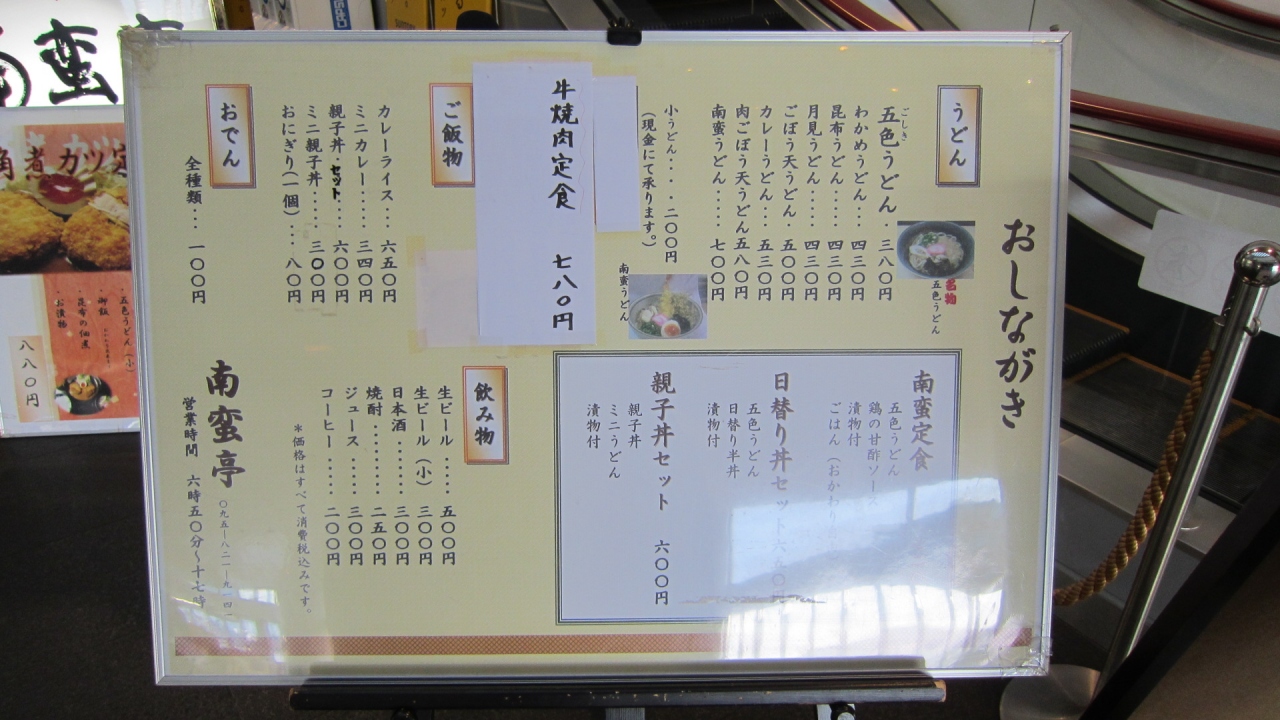 おしながき
うどん
ごしき
五色うどん・三八〇円
わかめうどん・・・四三〇円
昆布うどん・・・・四三〇円
月見うどん・・・・・四三〇円
ごぼう天うどん・・五〇〇円
カレーうどん・・・五三〇円
肉ごぼう天うどん五八〇円
南蛮うどん・・・・・七〇〇円
小うどん・・・・二〇〇円
(現金にて承ります。)
名物
五色うどん
南蛮うどん
牛焼肉定食 七八〇円
ご飯物
カレーライス・・・六五〇円
ミニカレー・・・・三四〇円
親子丼・セット・・・六〇〇円
ミニ親子丼・・・・三〇〇円
おにぎり(一個)・・・八〇円
おでん
全種類・・・一〇〇円
南蛮定食
五色うどん
鶏の甘酢ソース
漬物付
ごはん(おかわり
日替り丼セット
五色うどん
日替り半丼
漬物付
親子丼セット 六〇〇円
親子丼
ミニうどん
漬物付
飲み物
生ビール・・・・・五〇〇円
生ビール(小) 三〇〇円
日本酒・・・・・・・三〇〇円
焼酎・・・・・・・・二五〇円
ジュース・・・・・三〇〇円
コーヒー・・・・・二〇〇円
*価格はすべて消費税込みです。
南蛮亭
営業時間 六時五〇分~十七時
蛮
カツ定
五色うどん(小)
御飯
昆布の佃煮
お漬物
八八〇円